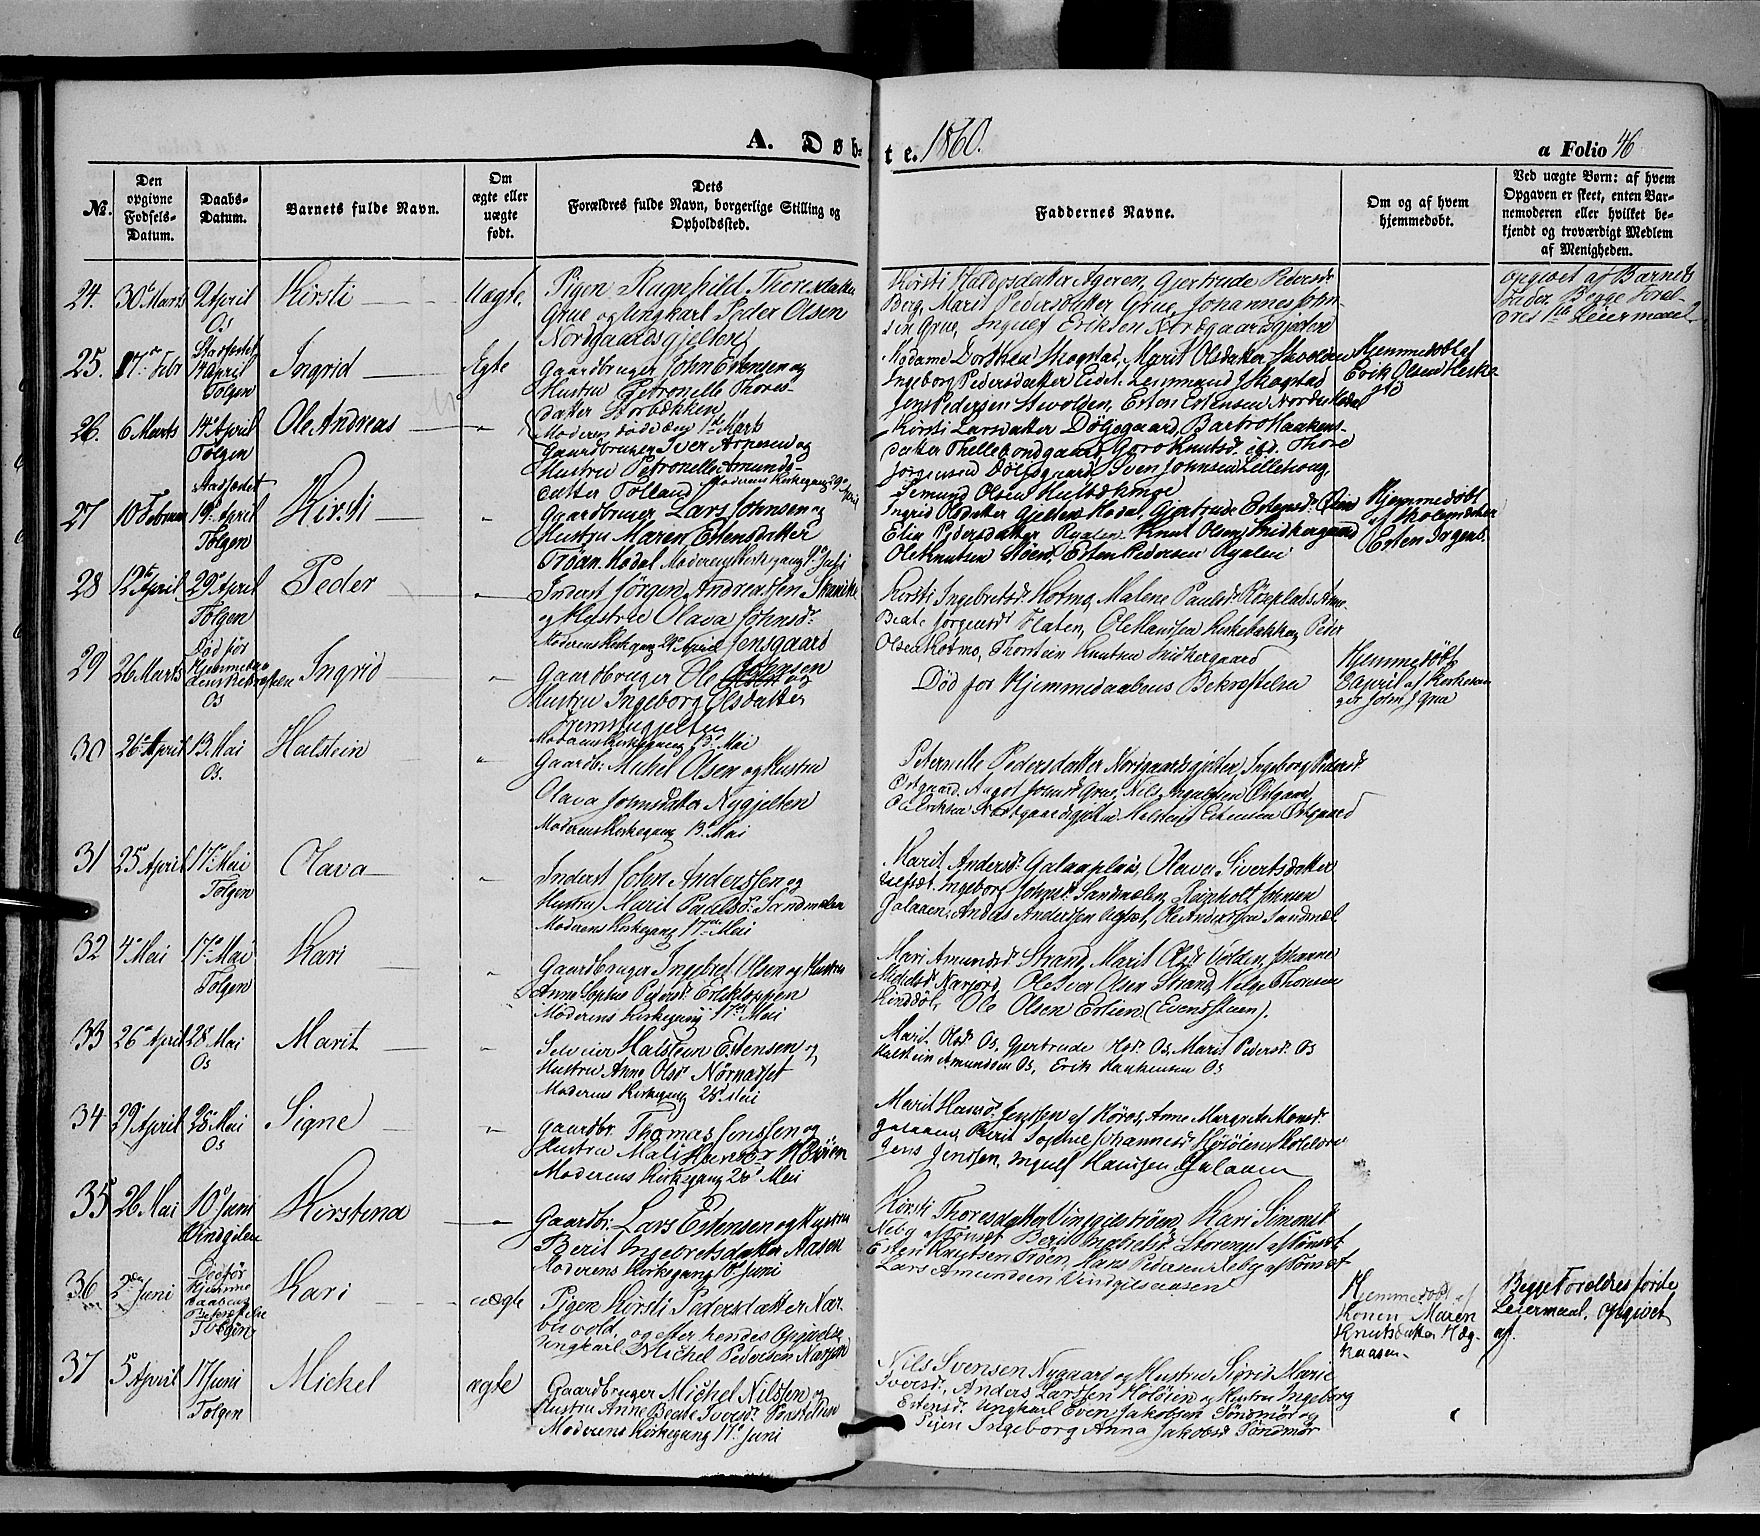 A. Døbte. 1860.
a Folio 46
№.
Den opgivne Fødsels-Datum.
Daabs-Datum.
Barnets fulde Navn.
Om ægte eller uægte født.
Dets Forældres fulde Navn, borgerlige Stilling og Opholdssted.
Faddernes Navne.
Om og af hvem hjemmedøbt.
Ved uægte Børn: af hvem Opgaven er skeet, enten Barnemoderen eller hvilket bekjendt og troværdigt Medlem af Menigheden.
24. 30 Marts 9 April Os Kirsti Uægte
Pigen Ragnhild Thoresdatter
Grue og Ungkarl Peder Olsen
Nordgaardsgjelten
Berg, Marit Pedersdatter Grue, Johannes John-
sen Grue, Ingulf Eriksen Nordgaardsgjelten
opgivet af Barnets
Fader. Begge Foræl-
dres 1ste Leiermaal
25. 17 Febr Stadfæstet 14 April Tolgen Ingrid Ægte
Gaardbruger John Estensen og
Hustru Petronelle Thores-
datter Storbækken
Moderen døde den 1st Marts
Madame Dorthea Skogstad, Marit Olsdatter
Ingeborg Pedersdatter Eid, Lensmand Skogstad
Jens Pedersen Svolden, Esten Estensen
Hjemmedøbt af
Erik Olsen
26. 6 Marts 14 April Tolgen Ole Andreas "
Gaardbruger Iver Arnesen og
Hustru Petronelle Amunds-
datter Tolland Moderens Kirkegang 29 April
Kirsti Larsdatter Døhsgaard, Barbro Haakens-
datter Goro Knutsd. ibd. Thore
Jørgensen Døhsgaard, Sven Johnsen Lillehoug
Semund Olsen
27 10 Februar Stadfæstet 19 April Tolgen Kirsti "
Gaardbruger Lars Johnsen og
Hustru Maren Estensdatter
Trøan Hodal Moderens Kirkegang Juli
Ingrid Olsdatter Gjelten Hodal, Gjertrude Estensd.
Elin Pedersdatter Øyalen Knut Olsen Midtergaard
Ole Knutsen Moen, Esten Pedersen Øyalen
Hjemmedøbt
af Skoleholder
Esten Jrgens.
28 12te April 29 April Tolgen Peder "
Inderst Jørgen Andreassen
og Hustru Olava Johnsd.
Moderens Kirkegang 29 April Jensgaard
Kirsti Ingebretsd. Holmø, Malene Paulsd. Røseplads, Anne
Beate Jørgensd. Flaten, Ole Hansen Kirkebakken, Peder
Olsen Holmø, Thorstein Knutsen Midtergaard
29 26 Marts Død før Hjemmedaabens Bekræftelse Os Ingrid "
Gaardbruger Ole Johnsen og
Hustru Ingeborg Olsdatter
Fremstugjelten
Moderens Kirkegang 13 Mai
Død før Hjemmedaabens Bekræftelse
Hjemmedøbt
2 April af Kirkesan-
ger John J Grue
30 26 April 13 Mai Os. Halstein "
Gaardb. Mikel Olsen og Hustru
Olava Johnsdatter Nygjelten
Moderens Kirkegang 13 Mai
Peternelle Pedersdatter Nordgaardsgjelten, Ingeborg Pedersd.
Østgaard, Aagot Johnsd. Grue, Nils Ingulfsen Østgaard
Ole Eriksen Nordgaardsgjelten Halstein Estensen Østgaard
31 25 April 17 Mai Tolgen Olava "
Inderst John Anderssen og
Hustru Marit Paulsd. Sandmælen
Moderens Kirkegang 17 Mai
Marit Andersd. Galaaplads, Olava Sivertsdatter
Ingeborg Johnsd. Sandmælen, Reinholt Johnsen
Galaaen, Anders Andersen Ole Anderssen Sandmæl
32 4 Mai 17 Mai Tolgen Kari "
Gaardbruger Ingebret Olsen og Hustru
Anne Sophie Pedersd. Erlikloppen
Moderens Kirkegang 17 Mai
Mari Amundsd. Strand, Marit Olsd. Volden, Johanne
Narjord, Ole Iver Olsen Strand, Helge Thoresen
Linddøl, Ole Olsen Erlien (Evensstuen).
33 26 April 28 Mai Os Marit "
Selveier Halstein Estensen og
Hustru Anne Olsd. Nørnæset
Moderens Kirkegang 28 Mai
Marit Olsd. Os, Gjertrude Olsd. Os, Marit Pedersd. Os
Halstein Amundsen Os, Erik Haakensen Os
34 29 April 28 Mai Os Signe "
Gaardbr. Thomas Jenssen og
Hustru Mali Hansd. Holøien
Moderens Kirkegang 28 Mai
Marit Hansd. Jenssen af Røros, Anne Margrete Monsd.
Galaaen, Berit Sophie Johannesd.
Jens Jenssen, Ingulf Hansen Galaaen
35 26 Mai 10 Juni Vindgelen Kirstina "
Gaardbr. Lars Estensen og Hustru
Berit Ingebretsdatter Aasen
Moderens Kirkegang 10 Juni
Kirsti Thoresdatter Vingelstrøen, Kari Simonsd.
Neby af Tønset, Berit Storengt af Tønset
Esten Knutsen Trøen, Hans Pedersen Neby af Tønset
Lars Amundsen Vindgelsaasen
36 2den Juni Død før Hjemmedaabens Bekræftelse Tolgen Kari uægte
Pigen Kirsti Pedersdatter Nar-
buvold, og efter hendes Opgivelse
Ungkarl Michel Pedersen Narjord
Hjemmedøbt af
Konen Maren
Knutsdatter Hæg-
kaasen.
Begge Forældres første
Leiermaal, opgivet
af.
37 5 April 17 Juni Tolgen Michel ægte
Gaardbruger Michel Nilssen og
Hustru Anne Beate Iversd.
Moderens Kirkegang 17 Juni
Nils Svensen Nygaard og Hustru Sigrid Marie
Iversd., Anders Larssen Holøien og Hustru Ingeborg
Estensd. Ungkarl Even Jakobsen Søndmør og
Pigen Ingeborg Anna Jakobsd. Søndmør